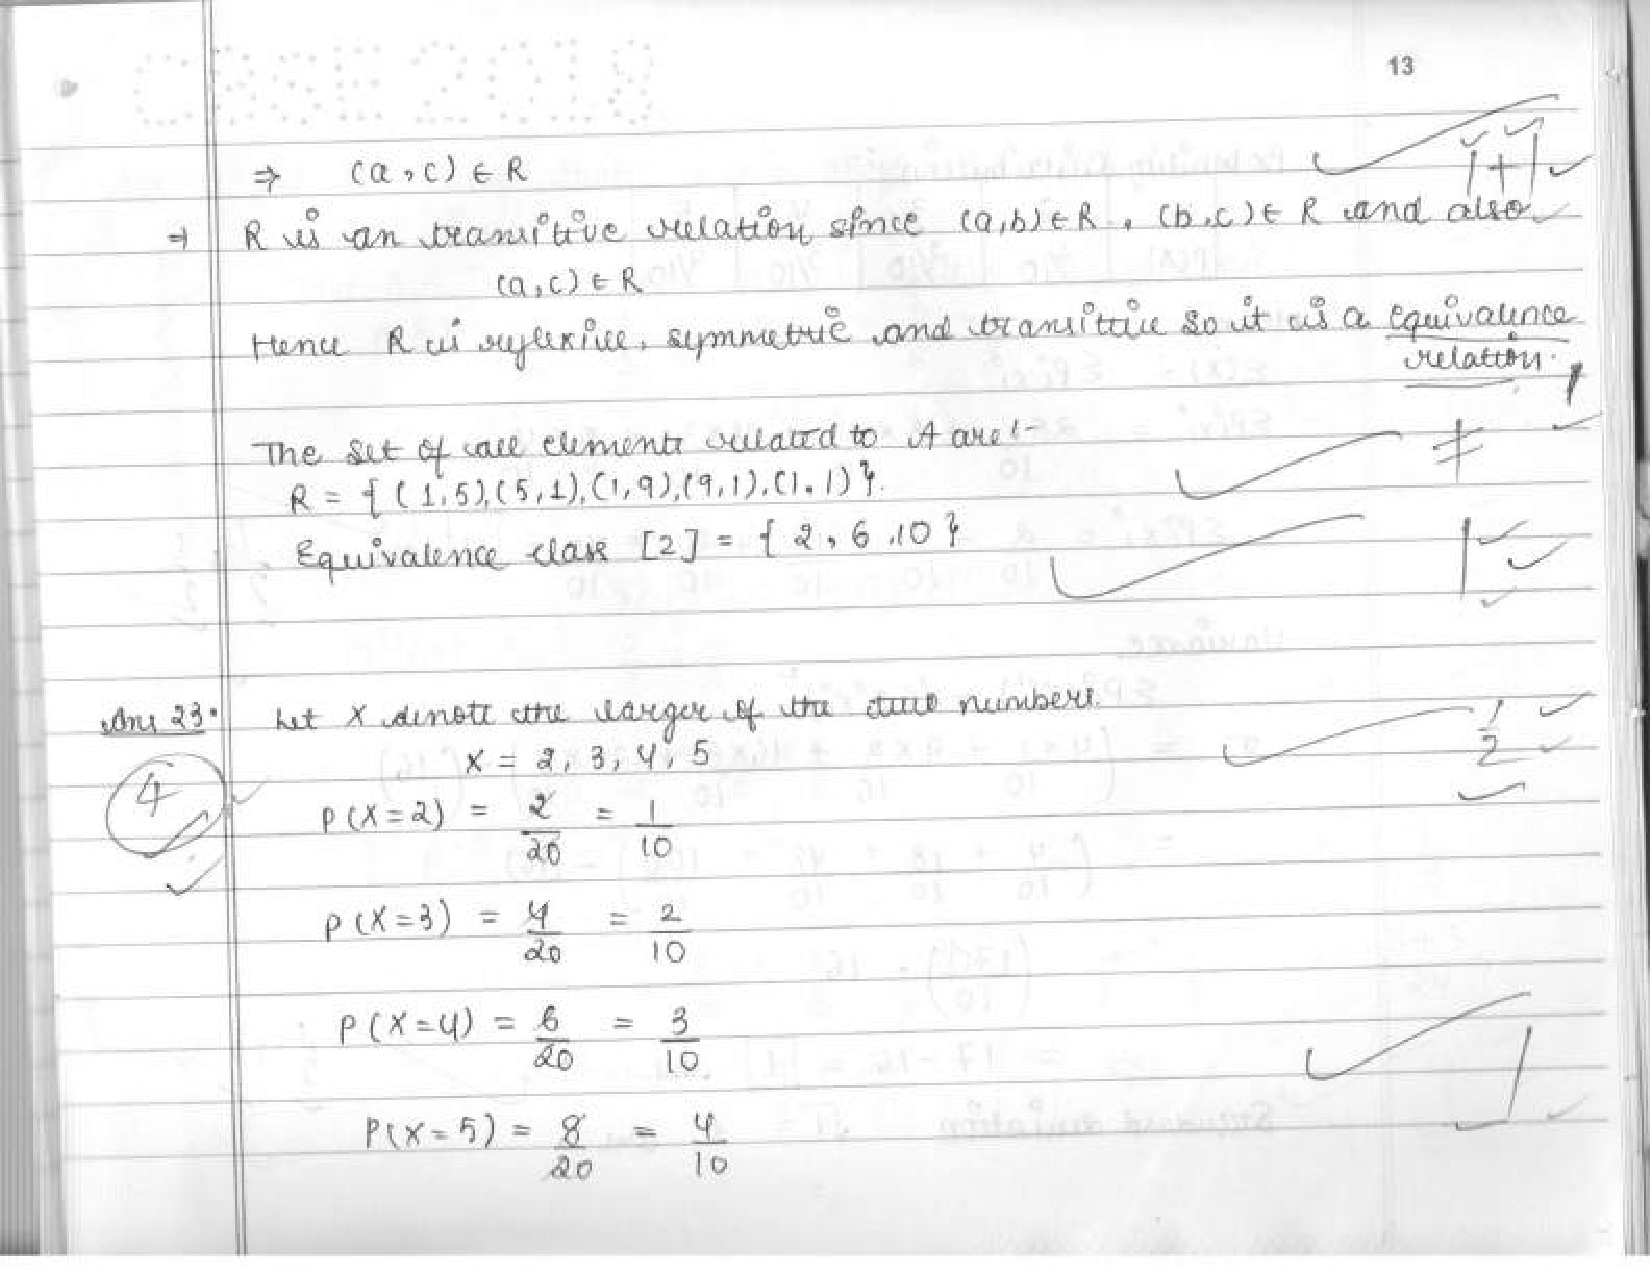 CBSE 2018
13
⇒ (a, c) ∈ R
1+1
⇒ R is an transitive relation since (a,b) ∈ R, (b,c) ∈ R and also
(a,c) ∈ R
Hence R is reflexive, symmetric and transitive so it is a equivalence
relation.
1
The set of all elements related to A are:-
R = { (1,5), (5,1), (1,9), (9,1), (1,1) }.
Equivalence class [2] = { 2, 6, 10 }
1
Ans 23. Let X denote the larger of the two numbers.
1/2
X = 2, 3, 4, 5
4
P(X=2) = 2/20 = 1/10
P(X=3) = 4/20 = 2/10
P(X=4) = 6/20 = 3/10
1
P(X=5) = 8/20 = 4/10